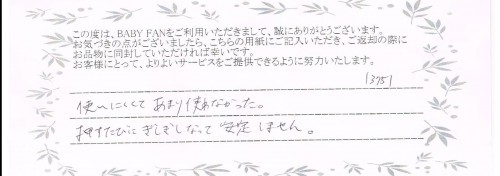 この度は、BABY FANをご利用いただきまして、誠にありがとうございます。
お気づきの点がございましたら、こちらの用紙にご記入いただき、ご返却の際に
お品物に同封していただければ幸いです。
お客様にとって、よりよいサービスをご提供できるように努力いたします。
13751
使いにくくて あまり使わなかった。
押すたびに ぎしぎしなって 安定しません。